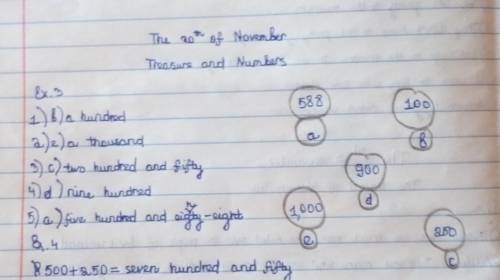 The 20th of November
Treasure and Numbers
Ex.3
1) b) a hundred
2) e) a thousand
3) c) two hundred and fifty
4) d) nine hundred
5) a) five hundred and eighty-eight
588
a
100
b
900
d
1,000
e
250
c
Ex.4
500+250= seven hundred and fifty